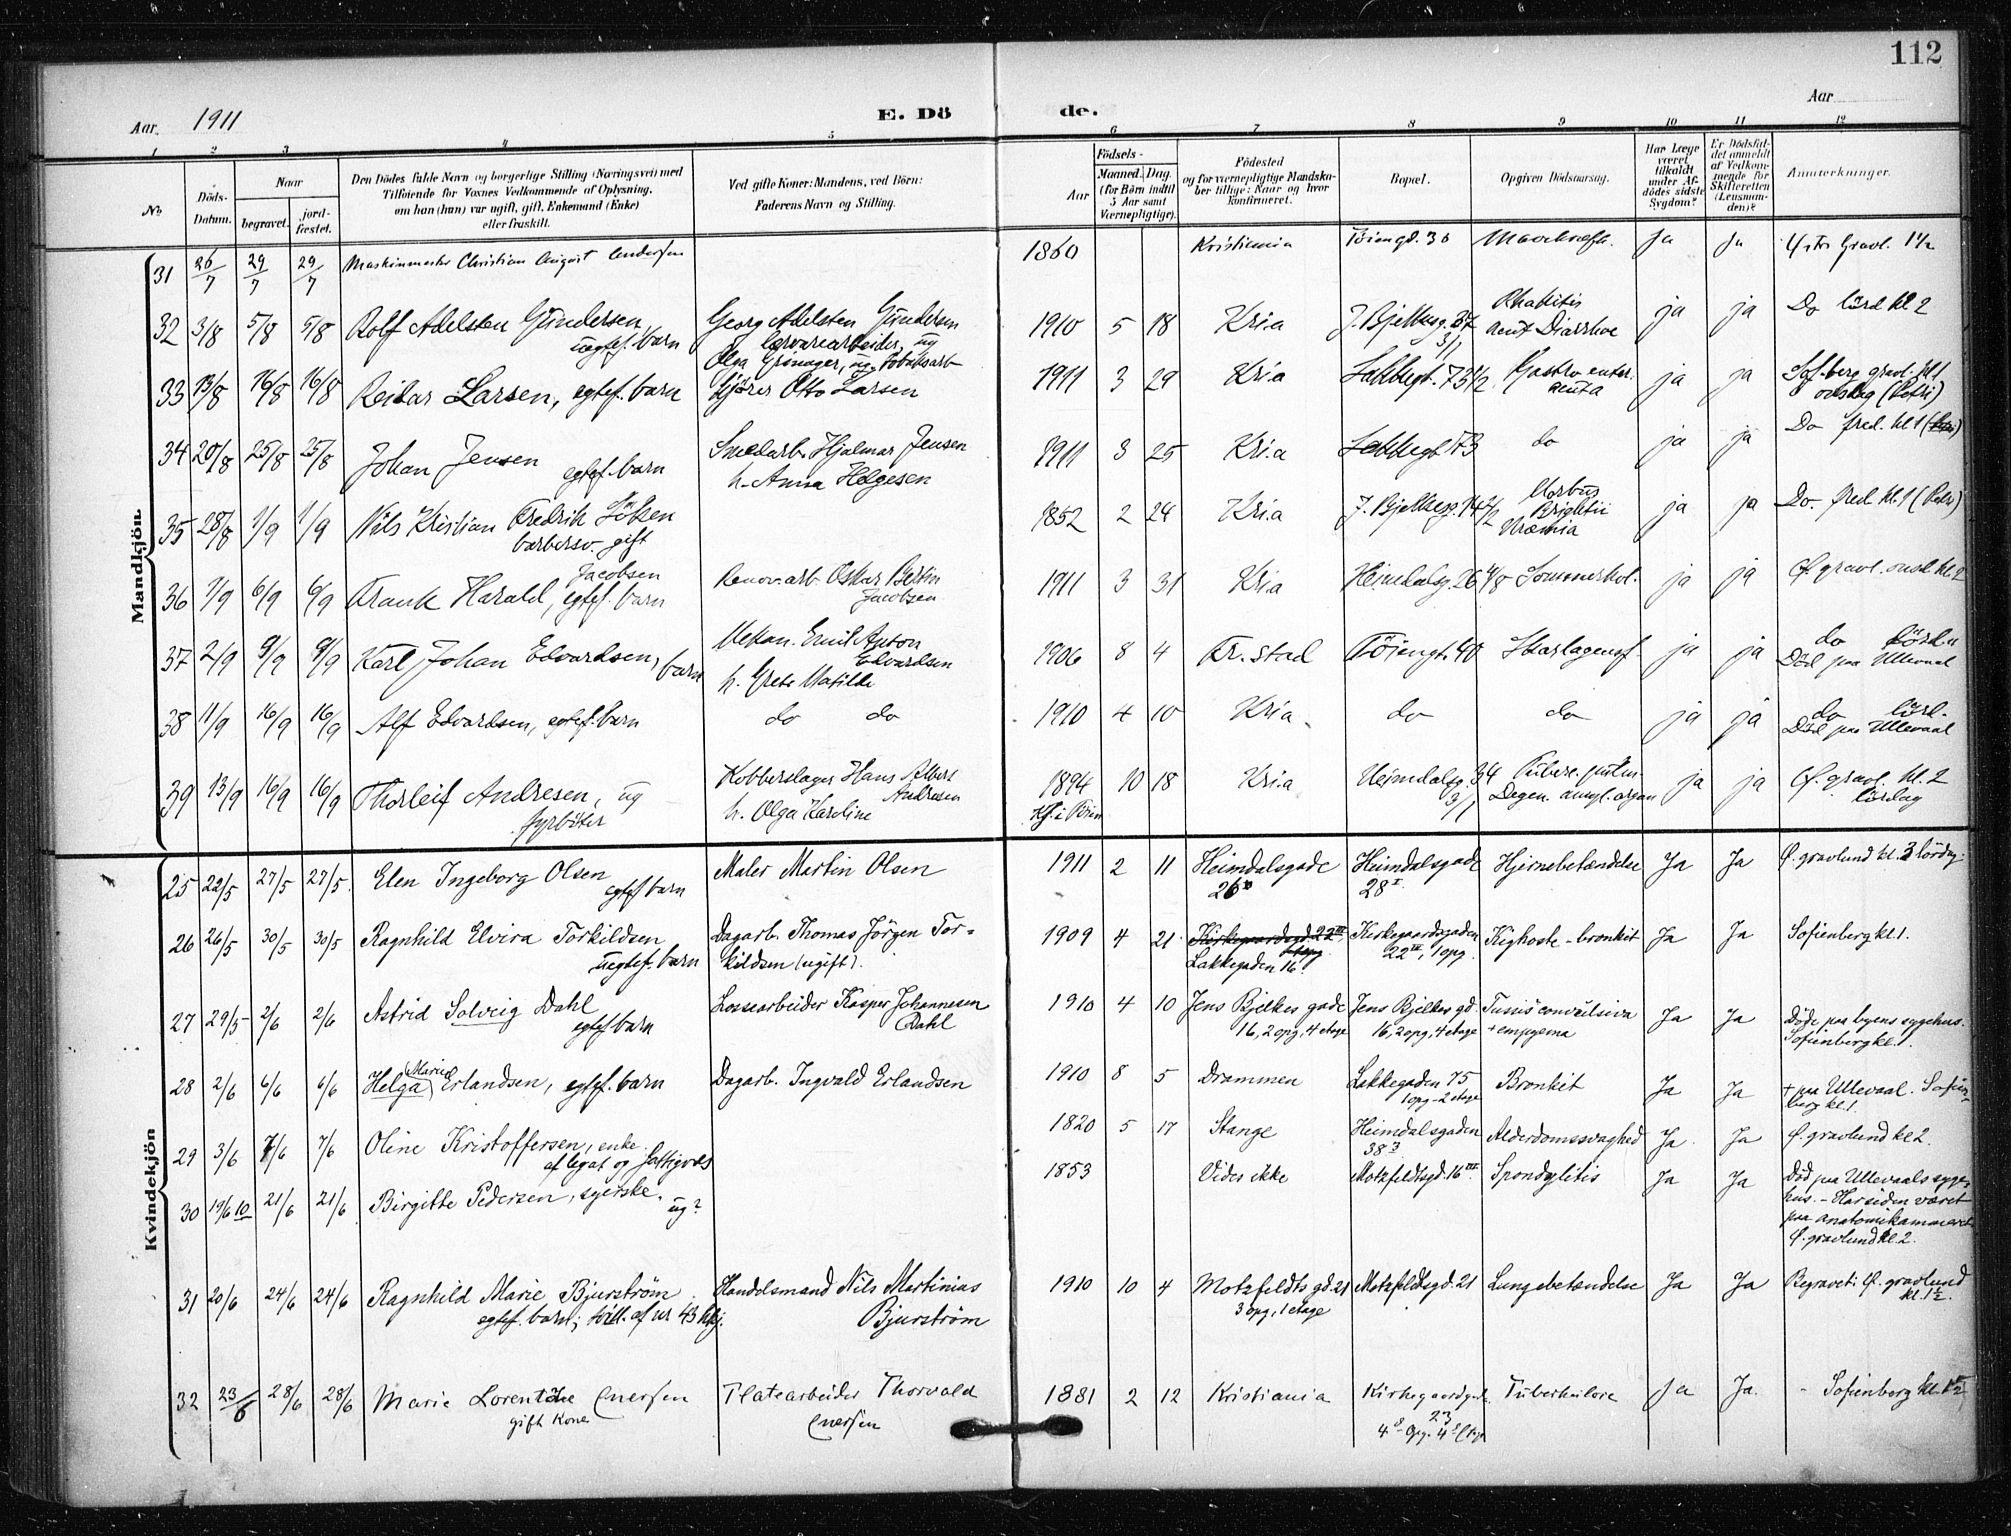 112
Aar. 1911 E. Döde. Aar
1 2 3 4 5 6 7 8 9 10 11 12
No. Döds-Datum. Naar begravet. jord-fæstet. Den Dödes fulde Navn og borgerlige Stilling (Næringsvei) med Tilföiende for Voxnes Vedkommende af Oplysning, om han (hun) var ugift, gift, Enkemand (Enke) eller fraskilt. Ved gifte Koner: Mandens, ved Börn: Faderens Navn og Stilling. Födsels- Aar Maaned. Dag. (for Börn indtil 5 Aar samt Værnepligtige). Födested og for værnepligtige Mandskaber tillige: Naar og hvor konfirmeret. Bopæl. Opgiven Dödsaarsag. Har Læge været tilkaldt under Afdödes sidste Sygdom? Er Dödsfaldet anmeldt af Vedkommende for Skifteretten (Lensmanden)? Anmærkninger.
Mandkjön.
31 26/7 29/7 29/7 Maskinmester Christian August Andersen 1860 Kristiania Töiengd. 30 Mavekræft. Ja Ja gravl. 1½
32 3/8 5/8 5/8 Rolf Adelsten Gundersen uegtef. barn Georg Adelsten Gundersen, ug Olga Grönager, ug. Tobaksarb 1910 5 18 Kr.ia J. Bjelkesg. 37 3/1 Rhakitis acut Diarrhoe ja ja Do lörd kl 2
33 13/8 16/8 16/8 Reidar Larsen, egtef. barn Kjörer Otto Larsen 1911 3 29 Kr.ia Lakkegt. 73 1/2 Gastro enter. acuta ja ja Sof.berg gravl. kl. 1 onsdag (Petri)
34 20/8 25/8 25/8 Johan Jensen egtef. barn Smedarb. Hjalmar Jensen h. Anna Helgesen 1911 3 25 Kr.ia Lakkegt 73 do ja ja Do fred. kl 1
35 28/8 1/9 1/9 Nils Kristian Fredrik Löken barbersv. gift 1852 2 24 Kr.ia J. Bjelkesg. 74 1/2 Morbus Brightii Uræmia ja ja Do. fred. kl. 1
36 1/9 6/9 6/9 Frank Harald Jacobsen, egtef. barn Renov.arb. Oskar Bertin Jacobsen 1911 3 31 Kr.ia Heimdalsg. 26 4/8 Sommerkol. ja ja Ö. gravl. onsd kl. 2
37 2/9 9/9 9/9 Karl Johan Edvardsen, barn Mekan. Emil Anton Edvardsen h. Grete Matilde 1906 8 4 Fr.stad Töiengt. 40 Skarlagensf. ja ja do Lörd. Död paa Ullevaal
38 11/9 16/9 16/9 Alf Edvardsen, egtef. barn do do 1910 4 10 Kr.ia do do ja ja do lörd. Död paa Ullevaal
39 13/9 16/9 16/9 Thorleif Andresen, ug fyrböter Kobberslager Hans Albert Andresen h. Olga Karoline 1894 10 18 Kr.ia Heimdalsg. 34 3/1 Tuberc. pulm. Degen. amyl. organ ja ja Ö. gravl. kl. 2 lördag
Kvindekjön
25 22/5 27/5 27/5. Elen Ingeborg Olsen egtef barn Maler Martin Olsen 1911 2 11 Heimdalsgade 26 Heimdalsgade 28 I Hjernebetændelse Ja Ja Ö. gravlund kl. 3 lördag
26 26/5 30/5 30/5 Ragnhild Elvira Torkildsen uegtef. barn Dagarb. Thomas Jörgen Torkildsen (ugift). 1909 4 21 Kirkegaardsgd 22 III Lakkegaden 16 Kirkegaardsgaden 22 III, 1 opg. Kighoste - bronkit Ja Ja Sofienberg kl. 1.
27 29/5 2/6 2/6 Astrid Solveig Dahl egtef barn Lossearbeider Kasper Johannesen Dahl 1910 4 10 Jens Bjelkes gade 16, 2 opg, 4 etage Jens Bjelkes gd. 16, 2 opg, 4 etage Tussis convulsiva + empyema Ja Ja Döde paa byens sygehus. Sofienberg kl. 1.
28 2/6 6/6 6/6 Helga Marie Erlandsen, egtef. barn Dagarb. Ingvald Erlandsen 1910 8 5 Drammen Lakkegaden 75 1 opg - 2 etage Bronkit Ja Ja + paa Ullevaal. Sofienberg kl. 1.
29 3/6 7/6 7/6 Oline Kristoffersen, enke. af legat og fattigvæs 1820 5 17 Stange Heimdalsgaden 38 3 Alderdomssvaghed Ja Ja Ö. gravlund kl 2.
30 19/6 10 21/6 21/6 Birgitte Pedersen, syerske. ug? 1853 Vides ikke Motzfeldtsgd. 16 III. Spondylitis Ja Ja Död paa Ullevaals sygehus. - Har siden været paa anatomikammeret Ö. gravlund kl. 2.
31 20/6 24/6 24/6 Ragnhild Marie Bjurström. egtef. barn; tvill. af nr 43 Mkj. Handelsmand Nils Martinius Bjurström 1910 10 4 Motzfeldts gd. 21 3 opg, 1 etage Motzfeldtsgd. 21 Lungebetændelse Ja Ja Begravet i Ö. gravlund kl. 1½.
32 23/6 28/6 28/6 Marie Lorentze Iversen gift Kone Platearbeider Thorvald Iversen 1881 2 12 Kristiania Kirkegaardgd. 23 Tuberkulose Ja Ja. Sofienberg kl. 1½